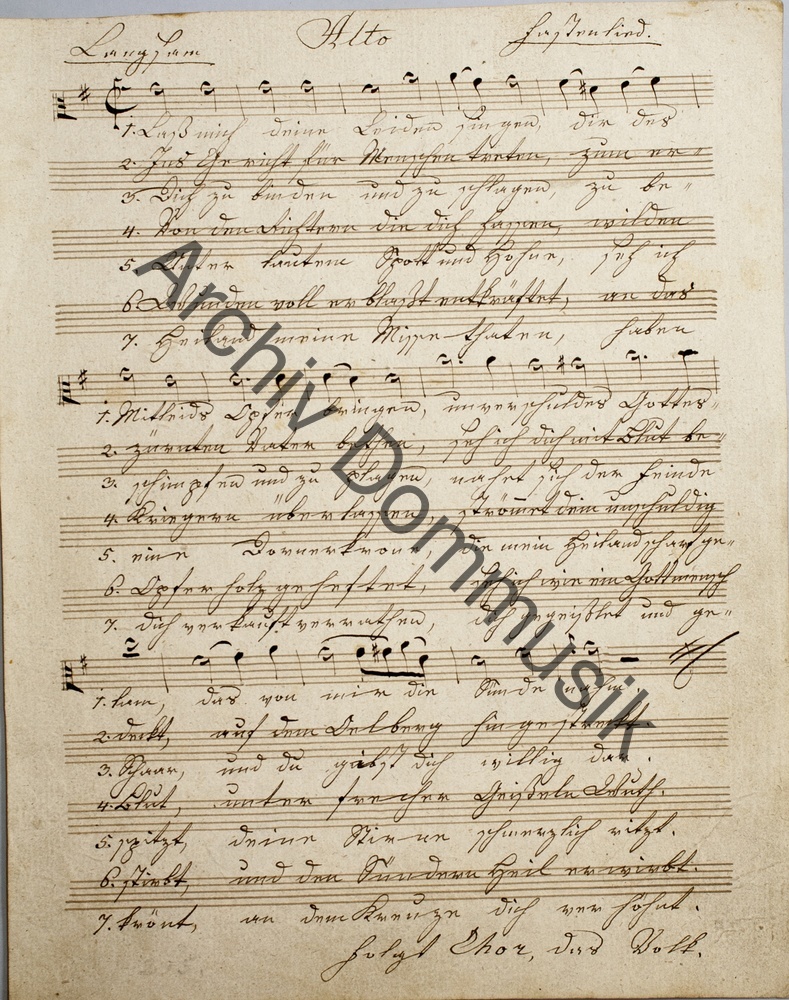 Langsam Alto Fastenlied.
1. Laß mich deine Leiden singen, dir des
2. Ins Gericht für Menschen treten, zum er-
3. Dich zu binden und zu schlagen, zu be-
4. Von den Richtern die dich hassen, wilden
5. Unter lautem Spott und Hohne, seh ich
6. Wunden voll erblaßt entkräftet, an das
7. Heiland meine Missethaten, haben
1. Mitleids Opfer bringen, unverschuldes Gottes-
2. zürnten Vater bethen, seh ich dich mit Blut be-
3. schimpfen und zu plagen, nahet sich der Feinde
4. Kriegern überlassen, strömet dein unschuldig
5. eine Dornerkrone, die mein Heiland scharf ge-
6. Opferholz geheftet, seh ich wie ein Gottmensch
7. dich verkauft verrathen, dich gegeißlet und ge-
1. lam, das von mir die Sünde nahm.
2. deckt, auf dem Oelberg hingestreckt.
3. Schaar, und du gabst dich willig dar.
4. Blut, unter frecher Geißeln Wuth.
5. spitzt, deine Stirne schmerzlich ritzt.
6. stirbt, und den Sündern Heil erwirbt.
7. krönt, an dem Kreuze dich verhöhnt.
Folgt Chor, das Volk.
Archiv Dommusik